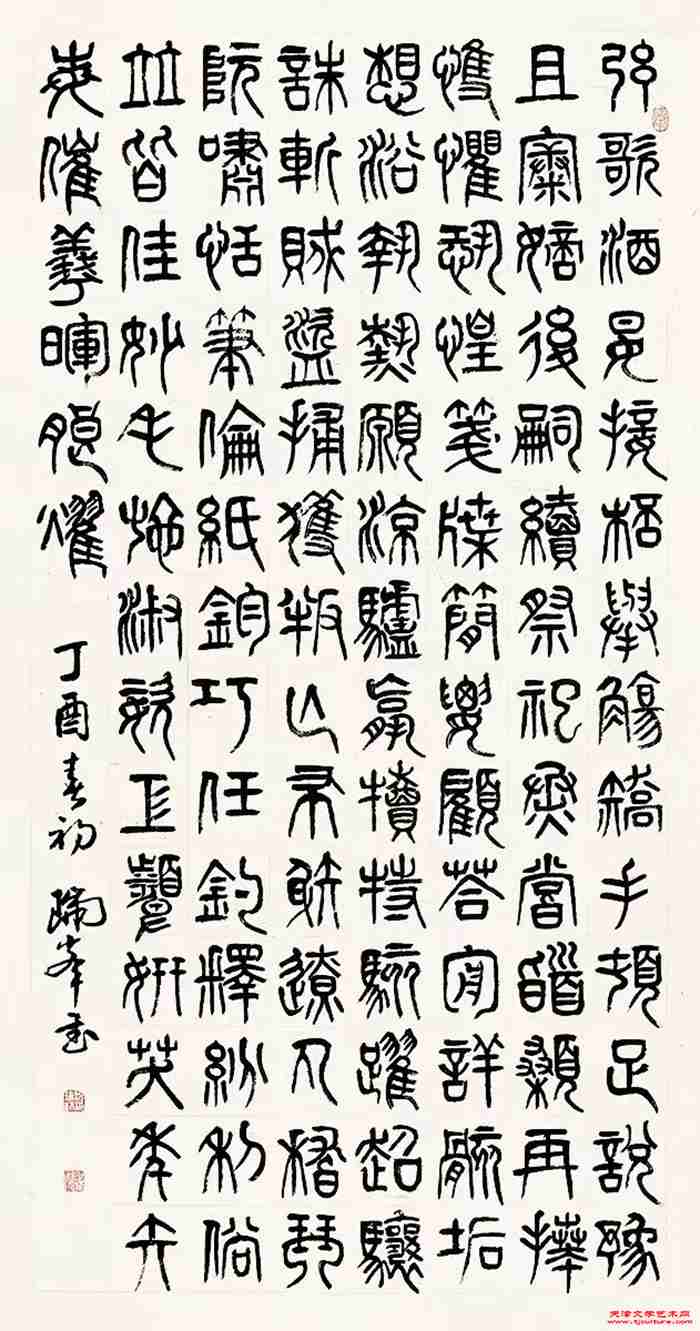 弦歌酒宴接杯舉觴矯手頓足說豫
且康嫡後嗣續祭祀烝嘗稽顙再捧
悚懼恐惶箋牒簡要顧荅審詳骸垢
想浴執熱願涼驢騾犢特駭躍超驤
誅斬賊盜捕獲叛亡布射遼丸嵇琴
阮嘯恬筆倫紙鈞巧任釣釋紛利俗
並皆佳妙毛施淑姿工顰妍笑年矢
每催羲暉朗燿
丁酉春初 瑞峰書
天津文学艺术网
www.tjculture.com